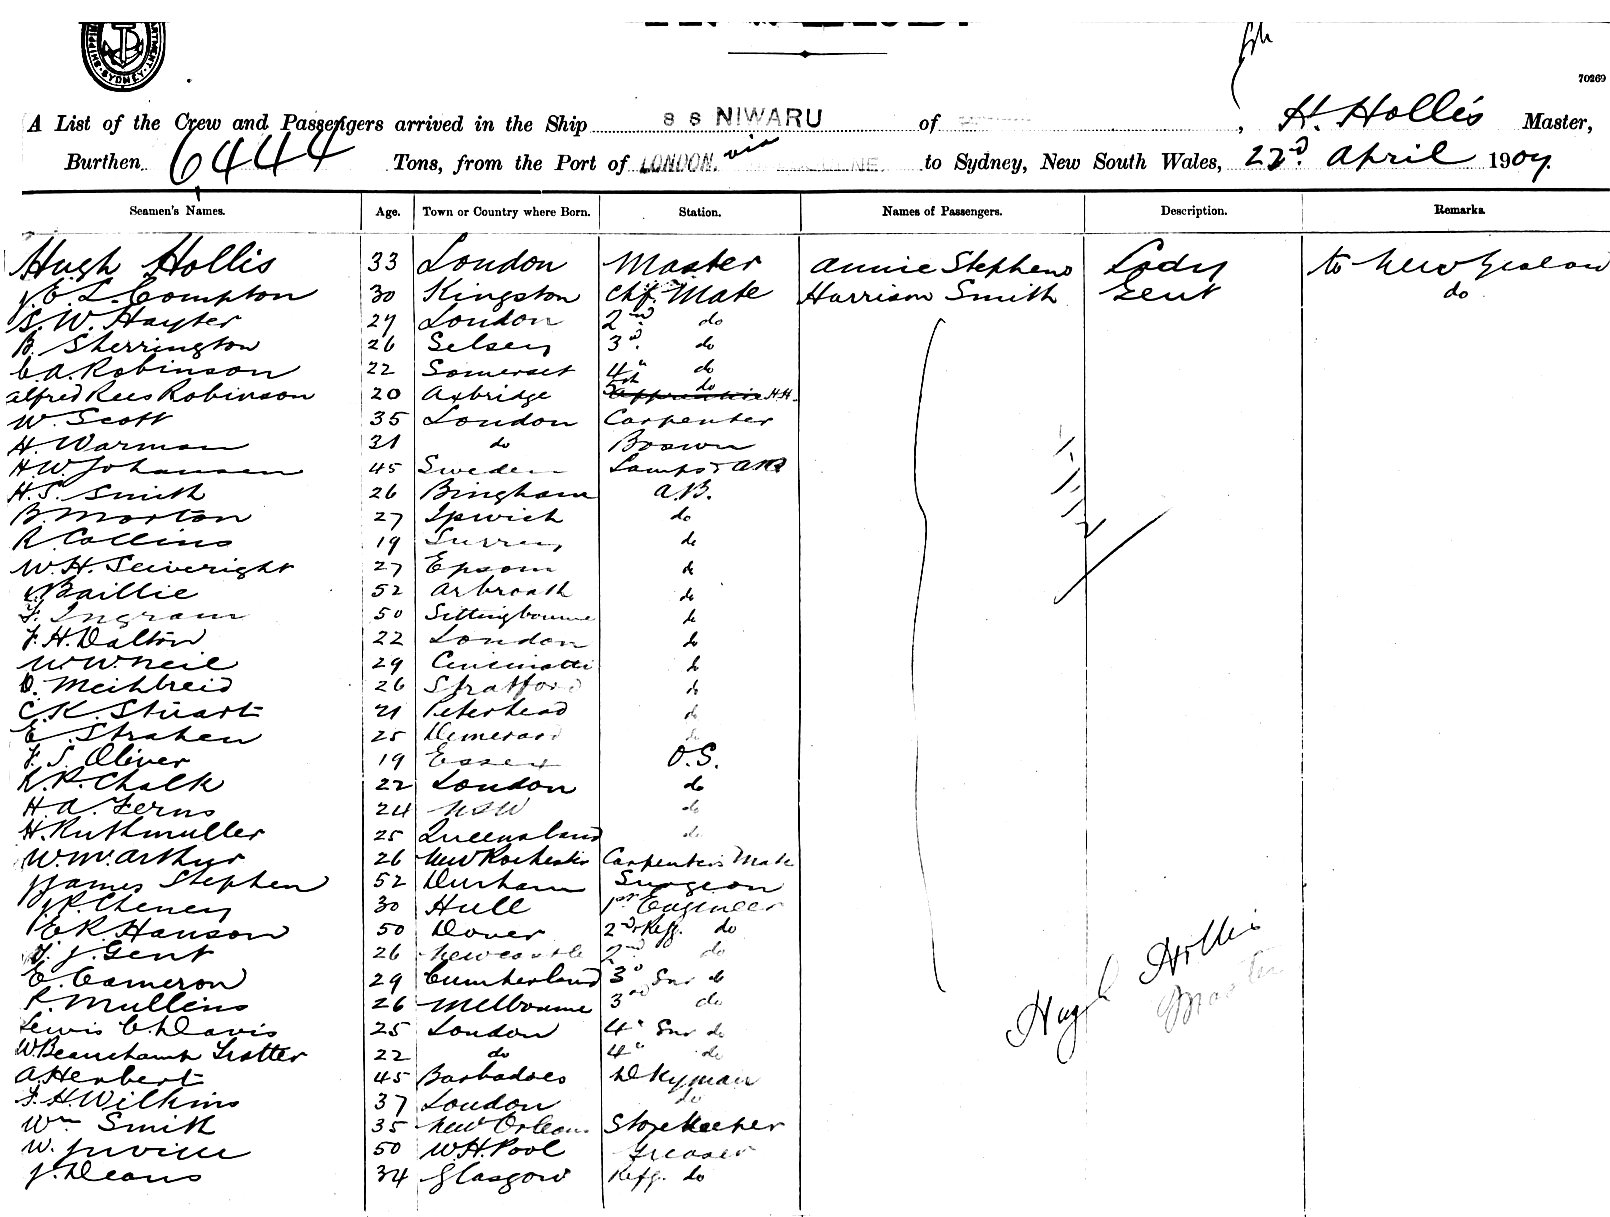 SYDNEY
70269
A List of the Crew and Passengers arrived in the Ship S S NIWARU of , H. Hollis Master,
Burthen 6444 Tons, from the Port of LONDON. via to Sydney, New South Wales, 22nd April 1904.
Seamen's Names. Age. Town or Country where Born. Station. Names of Passengers. Description. Remarks.
Hugh Hollis 33 London Master Annie Stephens Lady to New Zealand
J. E. L. Compton 30 Kingston Chf. Mate Harrison Smith Gent do
S. W. Hayter 27 London 2nd do
B. Sherrington 26 Selsey 3d. do
C. A. Robinson 22 Somerset 4th do
Alfred Rees Robinson 20 Axbridge 5th do Apprentice H.H.
W. Scott 35 London Carpenter
H. Warman 31 do Boswn
H. W. Johansen 45 Sweden Lamps & AB
H. S. Smith 26 Bingham A.B.
B. Morton 27 Ipwich do
R. Collins 19 Surrey do
W. H. Seivewright 27 Epsom do
Baillie 52 Arbroath do
F. Ingram 50 Sittingbourne do
F. H. Dalton 22 London do
W. W. Neil 29 Cincinatti do
26 Stratford do
C. K. Stuart 21 Peterhead do
E. Strahen 25 Demerara do
F. S. Oliver 19 Essex O.S.
R. P. Chalk 22 London do
H. A. Ferns 24 NSW do
H. Ruthmuller 25 Queensland do
W. McArthur 26 New Rochester Carpenters Mate
James Stephen 52 Durham Surgeon
J. R. Cheney 30 Hull 1st Engineer
E. R. Hanson 50 Dover 2nd Refg. do
F. J. Gent 26 Newcastle 2nd do
E. Cameron 29 Cumberland 3d Snr do
P. Mullens 26 Melbourne 3rd do
Lewis C. Davis 25 London 4th Snr do
W. Beauchamp Trotter 22 do 4th do
A. Herbert 45 Barbadoes Dkyman
F. H. Wilkins 37 London do
Wm Smith 35 New Orleans Storekeeper
W. 50 W. H. Pool Greaser
J. Deans 34 Glasgow Refg. do
Hugh Hollis
Master